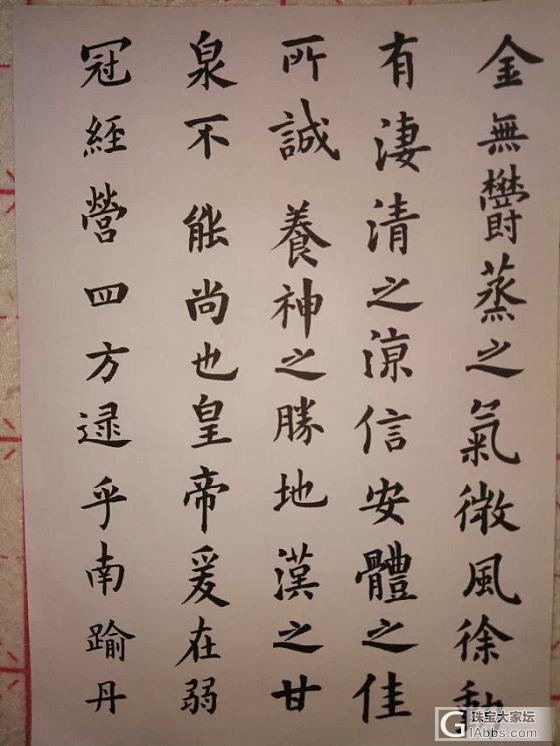 金無欝蒸之氣微風徐動
有淒清之涼信安體之佳
所誠養神之勝地漢之甘
泉不能尚也皇帝爰在弱
冠經營四方逮乎南踰丹
珠宝大家坛
iAbbs.com